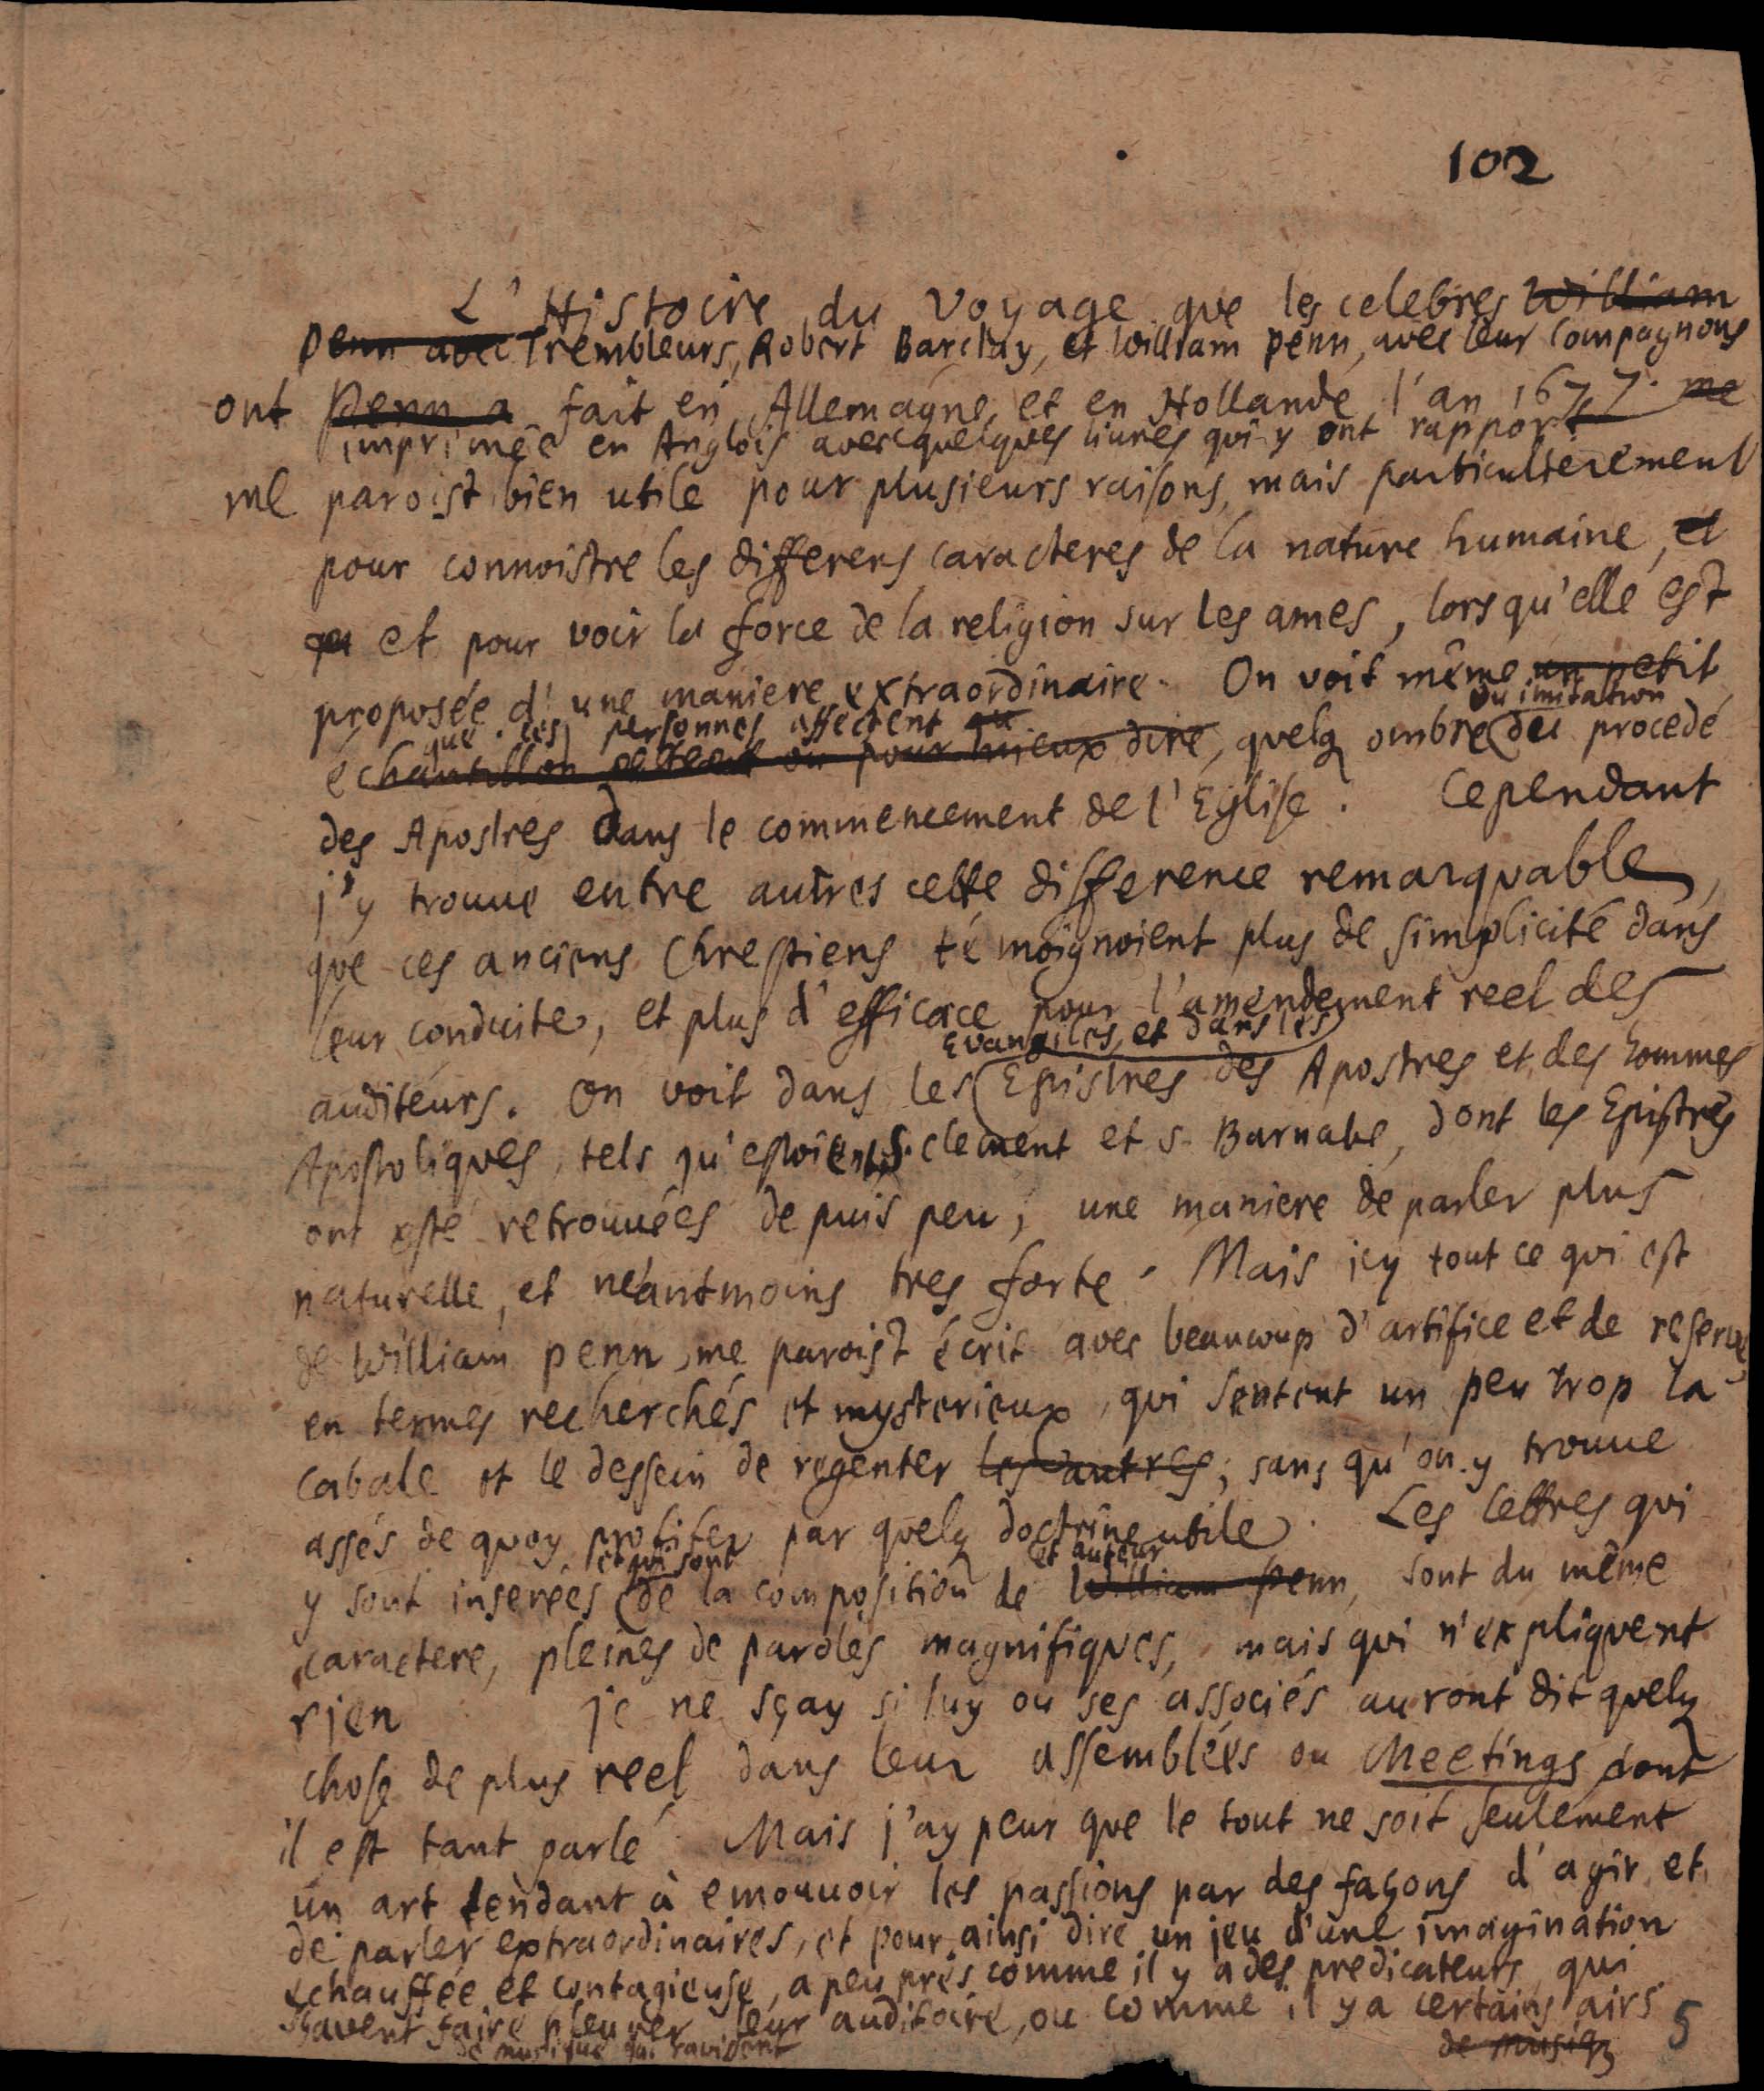 102
L'Histoire du voyage que les celebres William
Penn avec Trembleurs, Robert Barclay, et William Penn, avec leur compagnons
ont Penn a fait en Allemagne, et en Hollande l'an 1677. me
imprimée en Anglois avec quelques livres qui y ont rapport
me paroist bien utile pour plusieurs raisons, mais particulierement
pour connoistre les differens caracteres de la nature humaine, et
et pour voir la force de la religion sur les ames, lorsqu'elle est
proposée d'une maniere extraordinaire. On voit même un petit
que ces personnes affectent ou imitation
échantillon ou pour mieux dire, quelq ombre du procedé
des Apostres dans le commencement de l'Eglise. Cependant
j'y trouve entre autres cette difference remarquable,
que ces anciens Chrestiens témoignoient plus de simplicité dans
leur conduite, et plus d'efficace pour l'amendement reel des
Evangiles, et dans les
auditeurs. On voit dans les Epistres des Apostres et des hommes
Apostoliques, tels qu'estoient S. Clement et S. Barnabé, dont les Epistres
ont esté retrouvées depuis peu, une maniere de parler plus
naturelle, et neantmoins tres forte. Mais icy tout ce qui est
de William Penn, me paroist écrit avec beaucoup d'artifice et de reserve,
en termes recherchés et mysterieux, qui sentent un peu trop la
cabale et le dessein de regenter les autres, sans qu'on y trouve
assés de quoy profiter par quelq doctrine utile. Les lettres qui
et qui sont cet auteur
y sont inserées de la composition de William Penn, sont du même
caractere, pleines de paroles magnifiques, mais qui n'expliquent
rien je ne sçay si luy ou ses associés auront dit quelq
chose de plus reel dans leur assemblées ou Meetings dont
il est tant parlé. Mais j'ay peur que le tout ne soit seulement
un art tendant à emouvoir les passions par des façons d'agir et
de parler extraordinaires, et pour ainsi dire un jeu d'une imagination
echauffée et contagieuse, a peu près comme il y a des predicateurs qui
sçavent faire pleurer leur auditoire, ou comme il y a certains airs
de musique qui ravissent de musiq 5